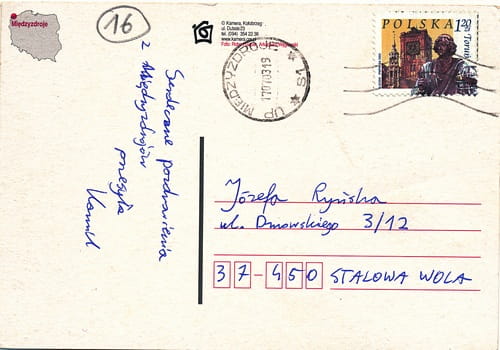 Międzyzdroje
16
© Kamera, Kołobrzeg
ul. Dubois 23
tel. (094) 354 22 36
www.kamera.org.pl
Foto:
POLSKA 1,20
Toruń
MIĘDZYZDROJE
UP
Serdeczne pozdrowienia
z Międzyzdrojów
przesyła
Kamil
Józefa Ryńska
ul. Dmowskiego 3/12
37-450 STALOWA WOLA